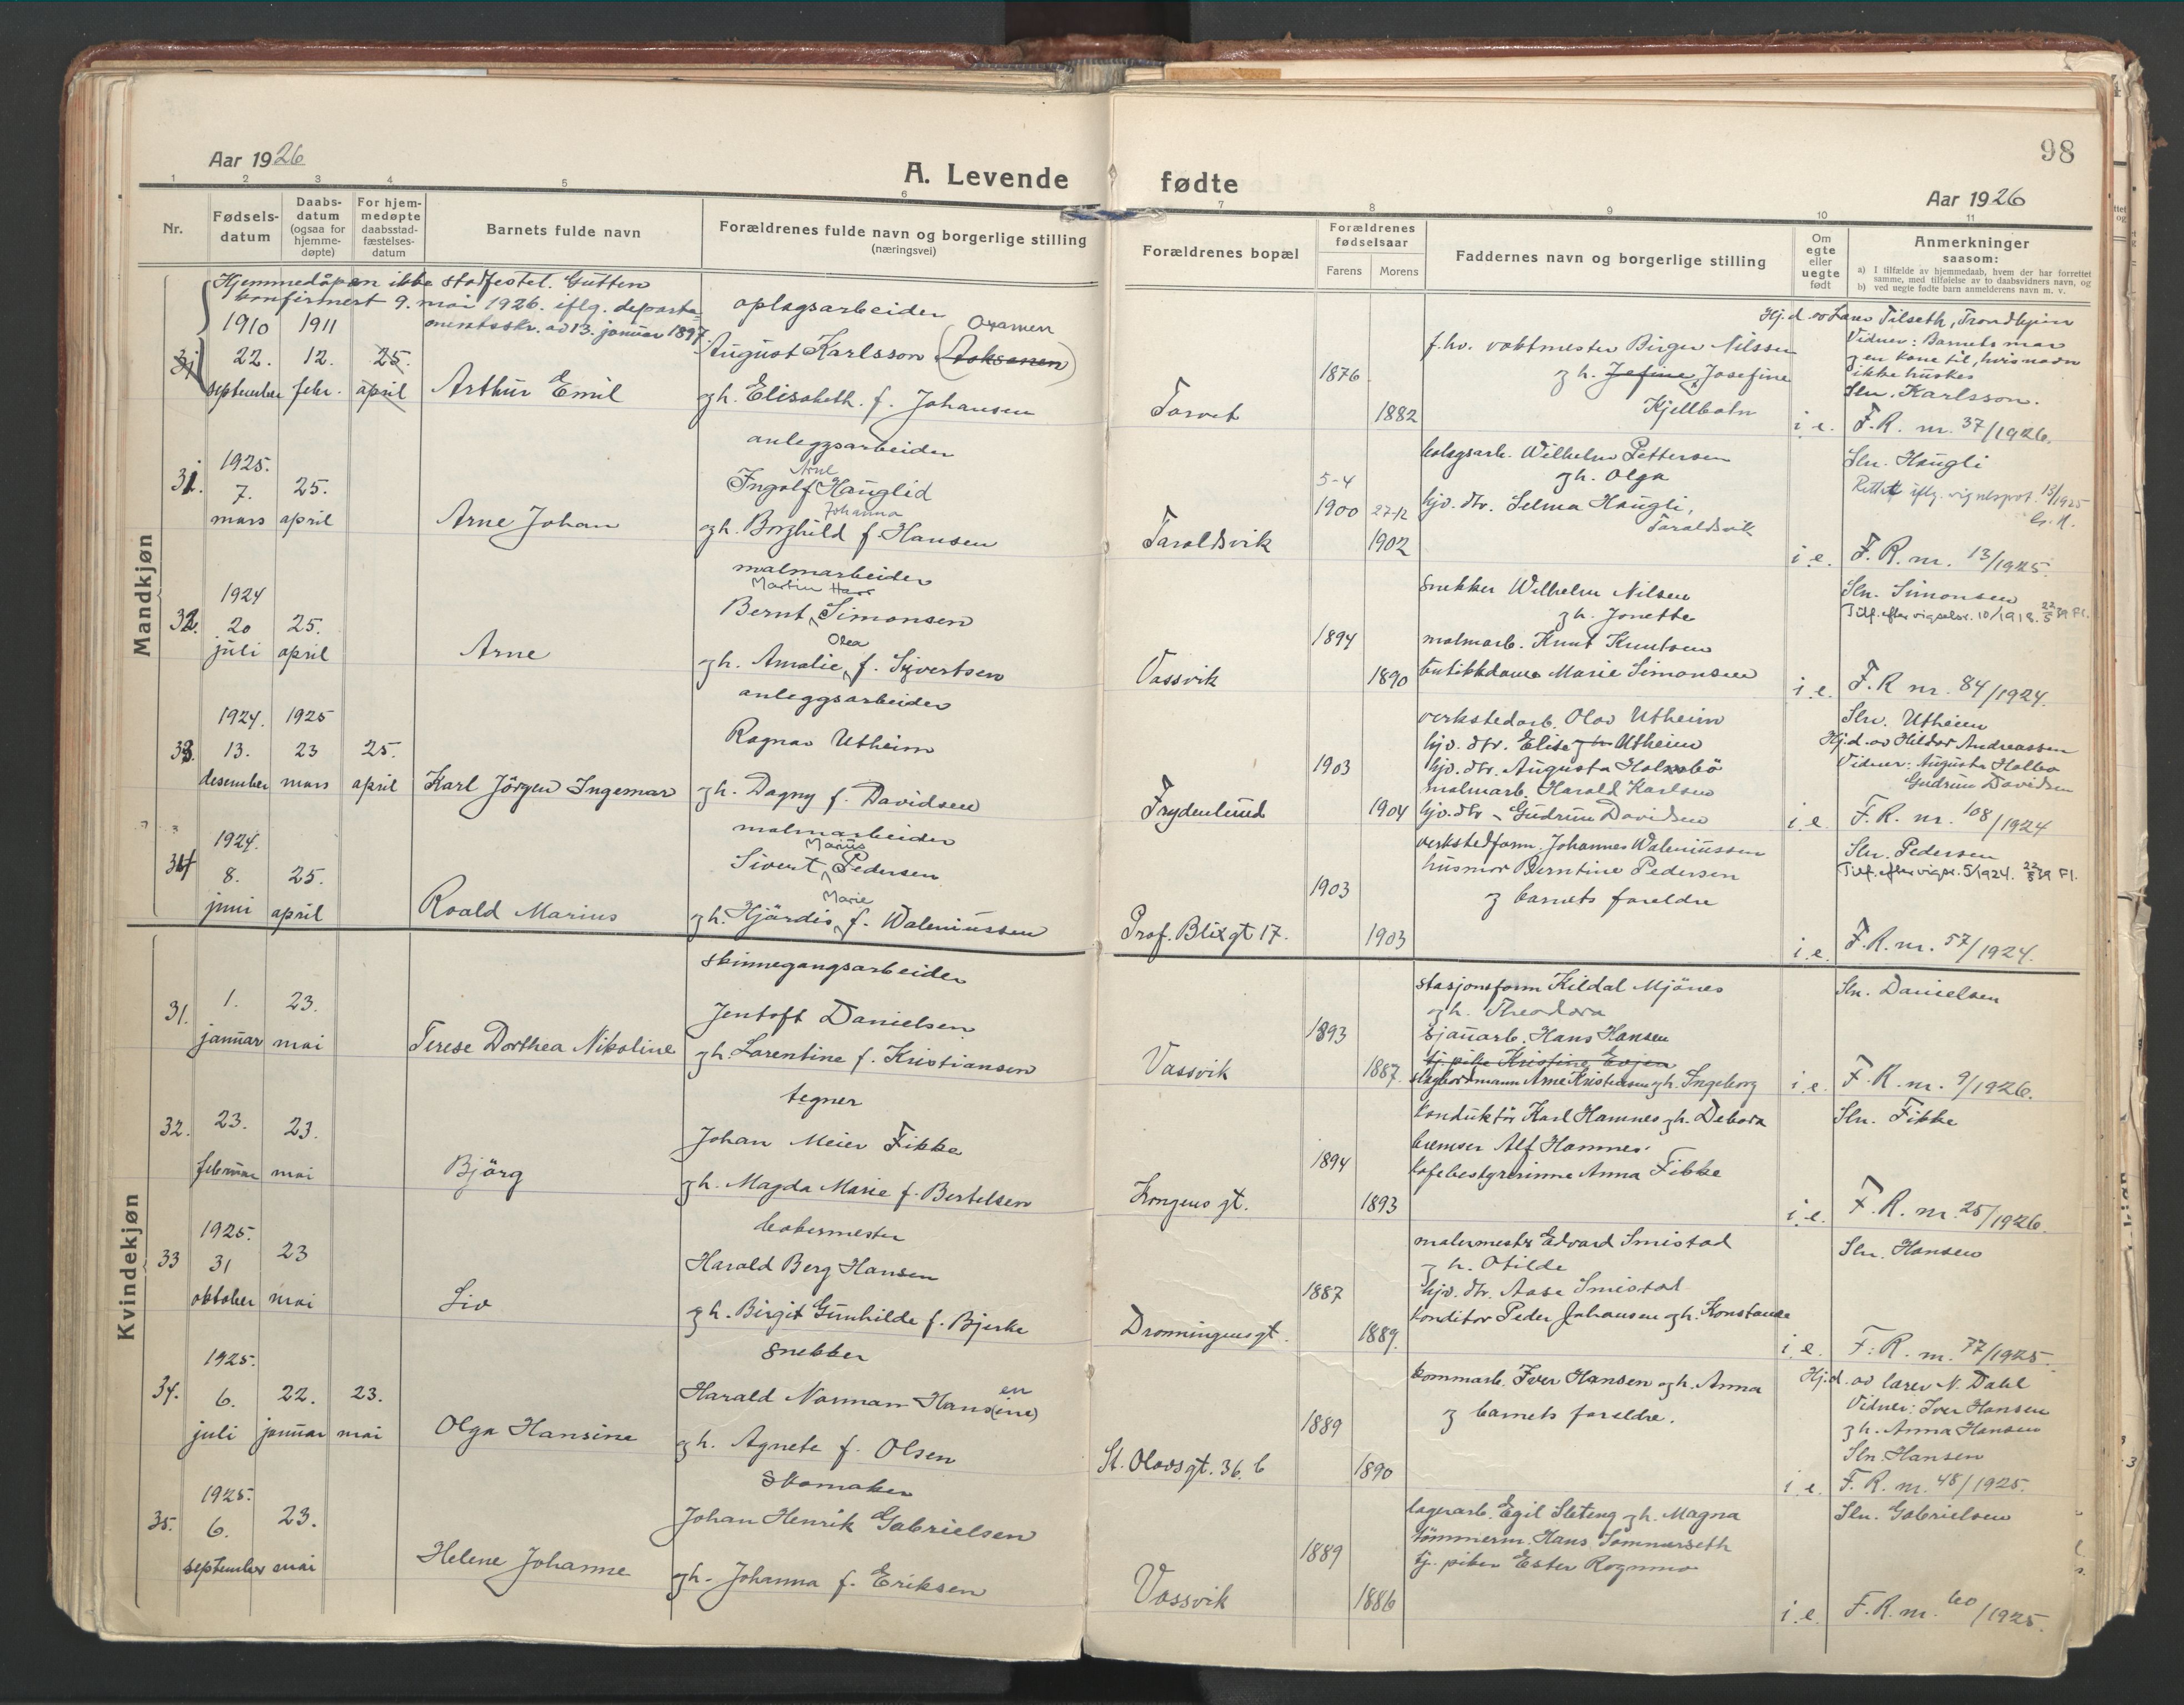 98
Aar 1926
A. Levende
fødte
Aar 1926
1 2 3 4 5 6 7 8 9 10 11
Nr.
Fødsels-
datum
Daabs-
datum
(ogsaa for
hjemme-
døpte)
For hjem-
medøpte
daabsstad-
fæstelses-
datum
Barnets fulde navn
Forældrenes fulde navn og borgerlige stilling
(næringsvei)
Forældrenes bopæl
Forældrenes
fødselsaar
Farens Morens
Faddernes navn og borgerlige stilling
Om
egte
eller
uegte
født
Anmerkninger
saasom:
a) I tilfælde av hjemmedaab, hvem der har forrettet
samme, med tilføielse av to daabsvidners navn, og
b) ved uegte fødte barn anmelderens navn m. v.
Mandkjøn
Hjemmedåpen ikke stadfestet. Gutten
konfirmert 9. mai 1926. iflg. departe-
mentsskr. av 13. januar 1897.
1910 1911
31 22. 12. 25.
september febr. april
Arthur Emil
oplagsarbeider
August Karlsson
gh. Elisabeth f. Johansen
Tarvet
1876
1882
f.hv. vaktmester Birger Nilssen
gh. Jefine Josefine
Kjellbotn
i.e.
Hj.d. av Lars Tilseth, Trondhjem
Vidner: Barnets mor
g en kone til, hvis navn
ikke huskes
Sln. Karlsson.
F.R. nr. 37/1926.
1925.
31. 7. 25.
mars april
Arne Johan
anleggsarbeider
Arne
Ingolf Hauglid
Johanna
gh. Borghild f. Hansen
Taraldsvik
5-4
1900 27-12
1902
bolagsarb. Wilhelm Pettersen
gh. Olga
hjv. dtr. Selma Haugli,
Taraldsvik
i.e.
Sln. Haugli
Rettet iflg. vigselsprot. 13/1925
F.R. nr. 13/1925.
1924
32. 20 25.
juli april
Arne
malmarbeider
Martin Hans
Bernt Simonsen
Olea
gh. Amalie f. Syvertsen
Vassvik
1894
1890
snekker Wilhelm Nilsen
gh. Jonette
malmarb. Knut Knutsen
butikkdame Marie Simonsen
i.e.
Sln. Simonsen
Tilf. efter vigselsr. 10/1918. 22/5 39 Fl.
F.R nr. 84/1924.
1924. 1925
33. 13. 23 25.
desember mars april
Karl Jörgen Ingemar
anleggsarbeider
Ragnar Utheim
gh. Dagny f. Davidsen
Frydenlund
1903
1904
verkstedarb. Olav Utheim
hjv. dtr. Elise gh Utheim
hjv. dtr. Augusta Holmbö
malmarb. Harald Karlsen
hjv. dtr - Gudrun Davidsen
i.e.
Sln. Utheim
Hj.d. av Hildor Andreassen
Vidner: Augusta Holbö
Gudrun Davidsen
F.R. nr. 108/1924
1924.
34 8. 25.
juni april
Roald Marius
malmarbeider
Marius
Sivert Pedersen
Marie
gh. Hjördis f. Waleniussen
Prof. Blixgt 17.
1903
1903
verkstedform. Johannes Waleniussen
husmor Berntine Pedersen
g barnets foreldre
i.e.
Sln. Pedersen
Tilf. efter vigsr. 5/1924. 22/5 39 Fl.
F.R. nr. 57/1924.
Kvindekjøn
31. 1. 23.
januar mai
Terese Dorthea Nikoline
skinnegangsarbeider
Jentoft Danielsen
gh. Larentine f. Kristiansen
Vassvik
1893
1887.
stasjonsform Kildal Mjönes
gh. Theodora
sjauarb. Hans Hansen
tj. pike Kristine Evjen
slagbordmann Arne Kristiansen gh. Ingeborg
i.e.
Sln. Danielsen
F.R. nr. 9/1926.
32. 23. 23.
februar mai
Björg
tegner
Johan Meier Fikke
gh. Magda Marie f. Bertelsen
Kongens gt.
1894
1893
konduktör Karl Hamnes gh. Debora
bremser Alf Hamnes
kafebestyrerinne Anna Fikke
i.e.
Sln. Fikke
F.R. nr. 25/1926.
1925.
33 31 23
oktober mai
Liv
bakermester
Harald Berg Hansen
gh. Birgit Gunhilde f. Bjerke
Dronningensgt.
1887
1889.
malermestr Edvard Smistad
gh. Otilde
hjv. dtr. Aase Smistad
konditor Peder Johansen gh. Konstance
i.e.
Sln. Hansen
F.R. nr. 77/1925.
1925.
34. 6. 22. 23.
juli januar mai
Olga Hansine
snekker
Harald Norman Hans(ine) en
gh. Agnete f. Olsen
St. Olavsgt. 36. b
1889
1890
kommarb. Iver Hansen gh. Anna
g barnets foreldre.
i.e.
Hj.d. av lærer N. Dahl
Vidner: Iver Hansen
gh. Anna Hansen
Sln Hansen
F.R. nr. 48/1925.
1925.
35. 6. 23.
september mai
Helene Johanne
Skomaker
Johan Henrik Gabrielsen
gh. Johanna f. Eriksen
Vassvik
1889
1886
lagerarb. Egil Sleteng gh. Magna
tömmerm. Hans Sommerseth
tj. piken Ester Rognmo
i.e.
Sln. Gabrielsen
F.R. nr. 60/1925.